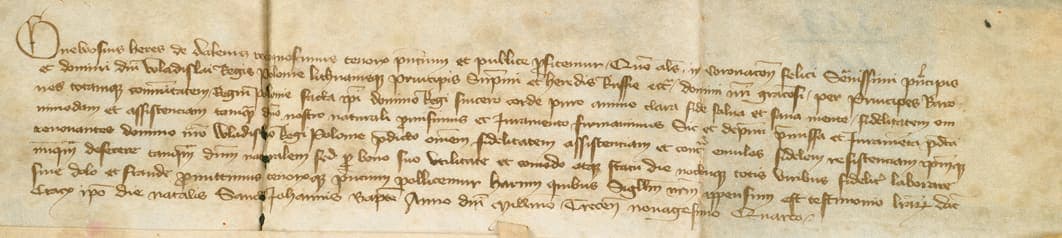 Gnewosius heres de Dalewice recognoscimus tenore pncium et publice pfitemur Quod als in coronacone felici Sereissimi principis
et domini dni Wladislai Regis Polonie lithwanieque principis Suppmi et heredis Russie etc, domini nri graciosi, per principes Baro-
nes totamque comunitatem Regni Polonie facta ipi domino Regi sincero corde puro animo clara fide salua et sana mente fidelitatem om
nimodam et assistenciam tamqm dno nostro naturali prestitimus et Juramento firmauimus Sic et denuo pmissa et Juramenta pdca
renouantes domino nro Wladislao Regi Polonie pdicto omem fidelitatem assistenciam et contra emulos fidelem resistenciam ipmque
nusqm deserere tamqm dnm naturalem sed pro bono suo vtilitate et comodo atque statu die noctuque totis viribus fideliter laborare
sine dolo et fraude promittimus tenoreque pncium pollicemur harum quibus Sigillum nrm appensum est testimonio lrarum Dat
Cracouie ipo die natalis Sancti Johannis Bapte Anno dni Millimo Trecen nonagesimo Quarto